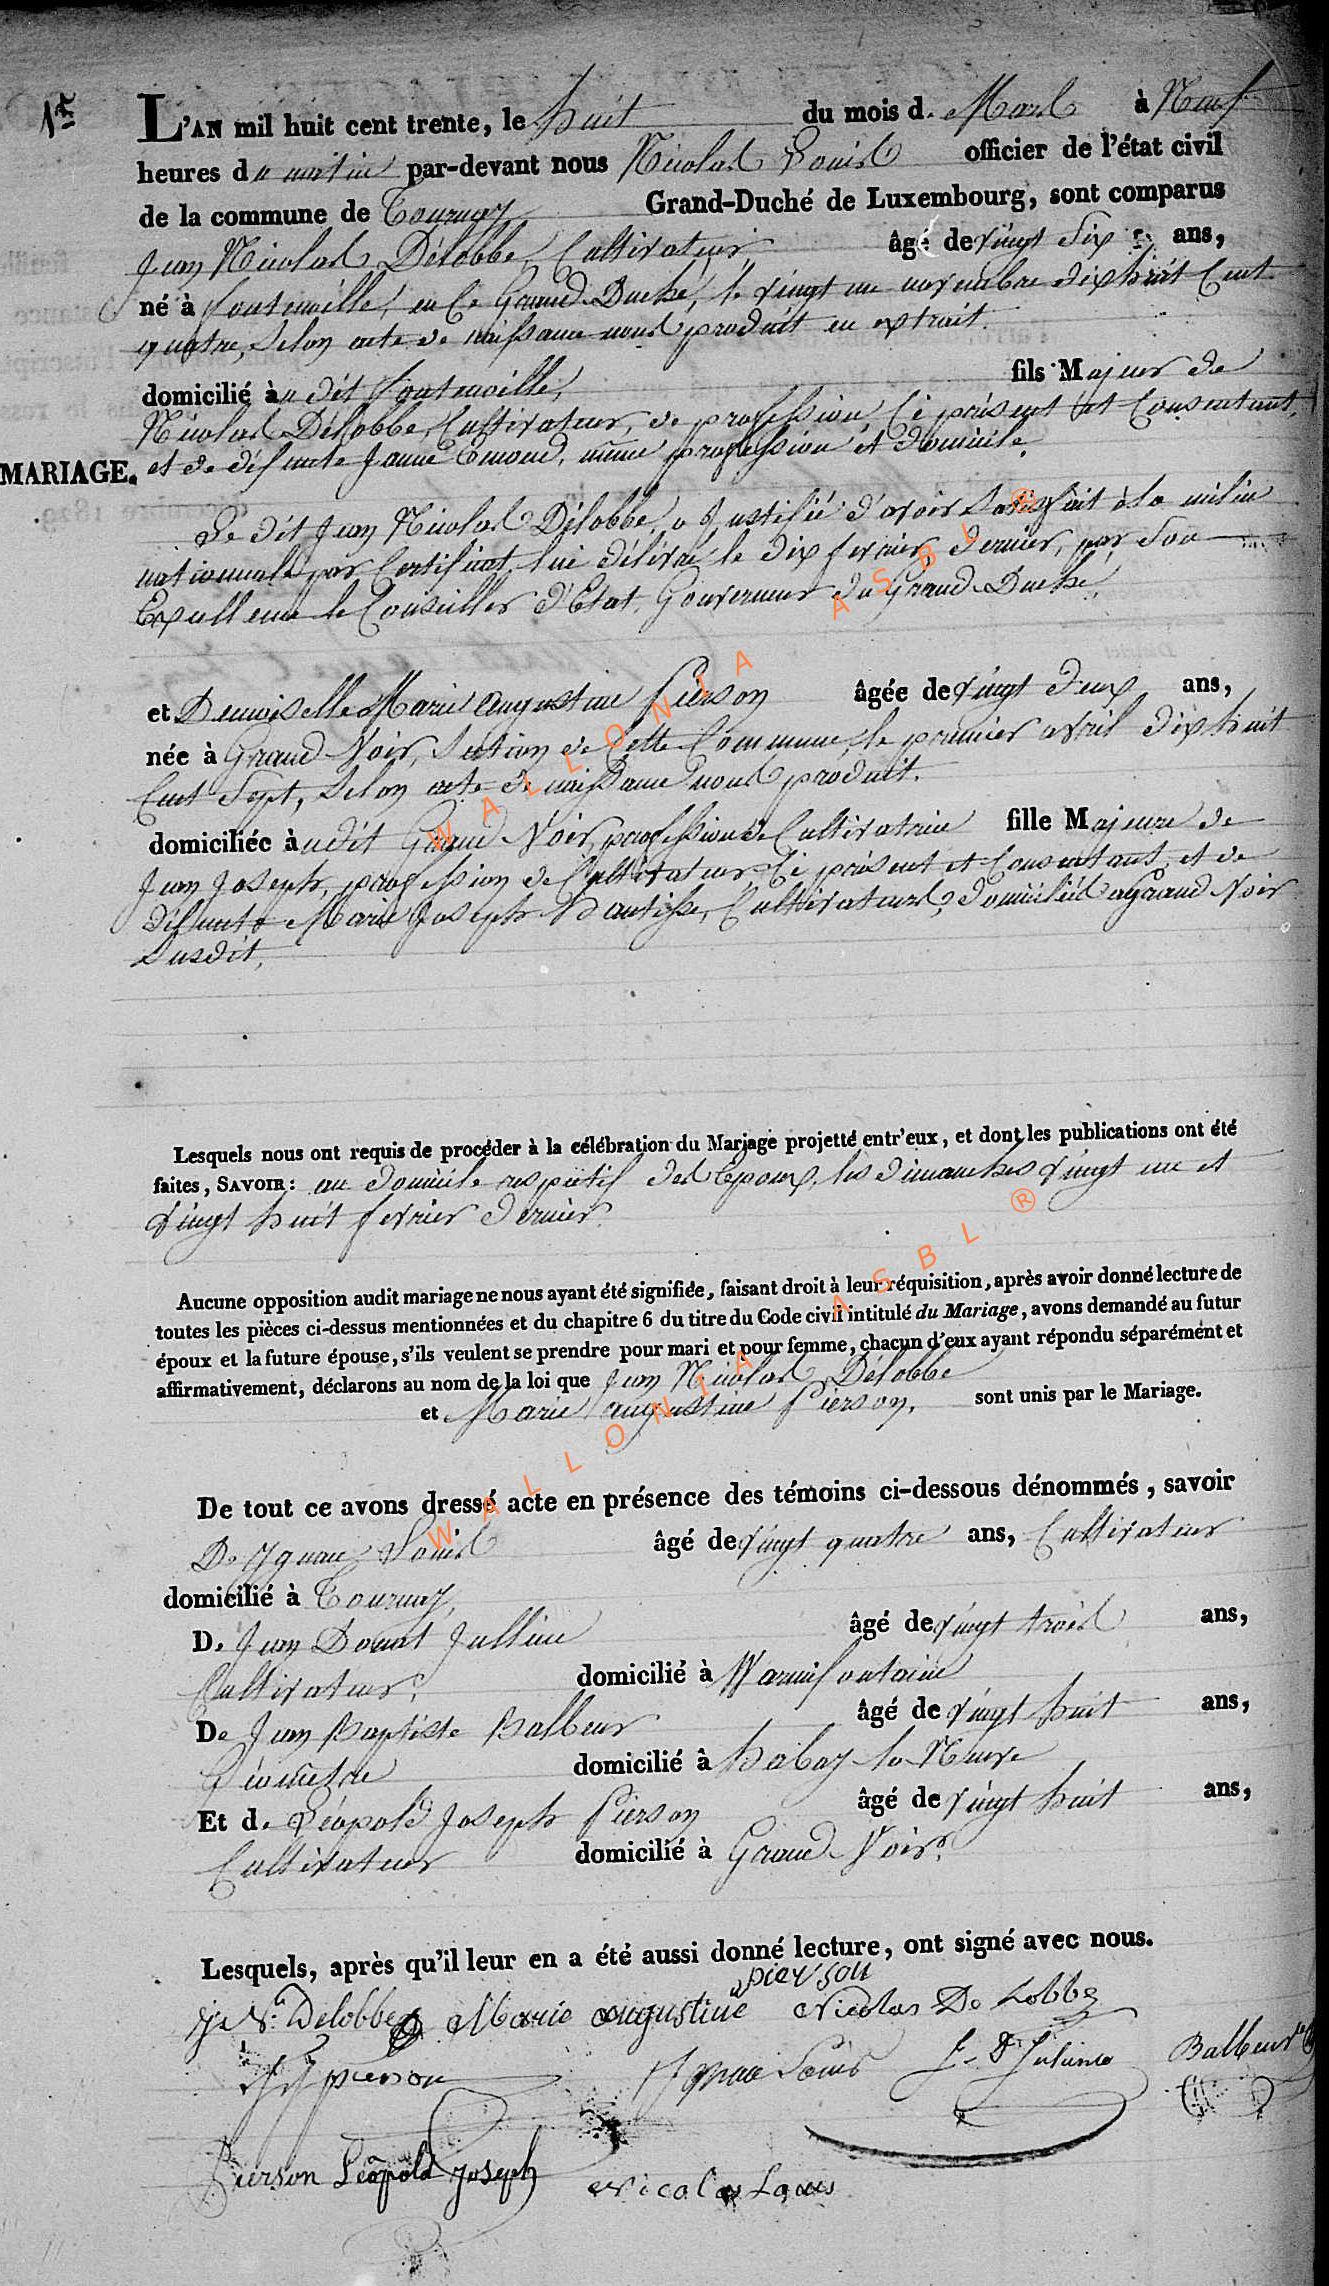 1er
L'AN mil huit cent trente, le huit du mois d. Mars à Neuf
heures du matin par-devant nous Nicolas Louis officier de l'état civil
de la commune de Tournay Grand-Duché de Luxembourg, sont comparus
Jean Nicolas Délobbe, Cultivateur, âgé de vingt Six ans,
né à fontenoille, en ce Grand Duché, le vingt un novembre dixhuit Cent
quatre, Selon acte de naissance nous produit en extrait.
domicilié à u dit fontenoille, fils Majeur de
Nicolas Délobbe, Cultivateur, de profession, Ci présent et Consentant,
et de défunte Jeanne Emond, même profession et domicile.
MARIAGE.
Le dit Jean Nicolas Délobbe, a Justifié d'avoir Satisfait à la milice
nationnale par Certificat lui délivré le dix fevrier dernier, par Son
Excellence le Conseiller d'Etat, Gouverneur du Grand Duché.
et Demoiselle Marie augustine Pierson âgée de vingt deux ans,
née à Grand Voir, Section de Cette Commune, le premier avril dixhuit
Cent Sept, Selon acte de naissance nous produit.
domiciliée à udit Grand Voir, profession de Cultivatrice fille Majeure de
Jean Joseph, profession de Cultivateur, Ci présent et Consentant, et de
défunte Marie Joseph Cultivateurs, domiciliés à Grand Voir
Susdit,
Lesquels nous ont requis de procéder à la célébration du Mariage projetté entr'eux, et dont les publications ont été
faites, SAVOIR: au domicile respectif des Epoux, les dimanches vingt un et
vingt huit fevrier dernier.
Aucune opposition audit mariage ne nous ayant été signifiée, faisant droit à leur réquisition, après avoir donné lecture de
toutes les pièces ci-dessus mentionnées et du chapitre 6 du titre du Code civil intitulé du Mariage, avons demandé au futur
époux et la future épouse, s'ils veulent se prendre pour mari et pour femme, chacun d'eux ayant répondu séparément et
affirmativement, déclarons au nom de la loi que Jean Nicolas Délobbe
et Marie augustine Pierson, sont unis par le Mariage.
De tout ce avons dressé acte en présence des témoins ci-dessous dénommés, savoir
De Ignace Louis âgé de vingt quatre ans, Cultivateur
domicilié à Tournay,
D. Jean Donat Jullien âgé de vingt trois ans,
Cultivateur, domicilié à Warmifontaine
De Jean Baptiste Balbeur âgé de vingt huit ans,
Géomètre domicilié à habay la Neuve
Et d. Léopold Joseph Pierson âgé de vingt huit ans,
Cultivateur domicilié à Grand Voir.
Lesquels, après qu'il leur en a été aussi donné lecture, ont signé avec nous.
J. N. Delobbe Marie augustine pierson Nicolas De Lobbe
J J pierson Ignace Louis J. D Balbeur
Pierson Léopold Joseph Nicolas Louis
WALLONIA ASBL ®
WALLONIA ASBL ®